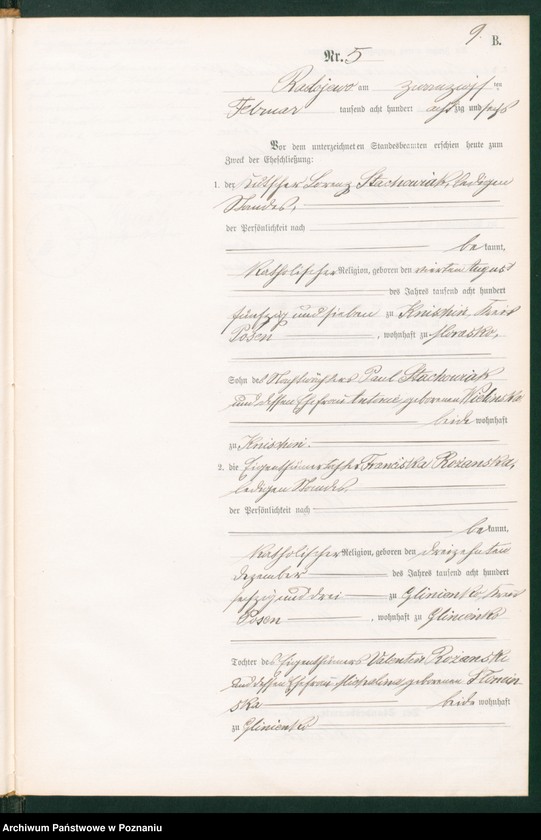 9. B.
Nr. 5
Radojewo am zwanzigsten
Februar tausend acht hundert achtzig und sechs
Vor dem unterzeichneten Standesbeamten erschien heute zum
Zweck der Eheschließung:
1. der Lorenz Stachowiak, ledigen
Standes,
der Persönlichkeit nach
be kannt,
katholischer Religion, geboren den vierten August
des Jahres tausend acht hundert
fünfzig und sieben zu Knischin, Kreis
Posen, wohnhaft zu Morasko,
Sohn des Nachtwächters Paul Stachowiak
und dessen Ehefrau Antonie geborenen
beide wohnhaft
zu Knischin.
2. die Eigenthümertochter Franciska Rożanska,
ledigen Standes,
der Persönlichkeit nach
be kannt,
katholischer Religion, geboren den dreizehnten
Dezember des Jahres tausend acht hundert
sechzig und drei zu Glinienko, Kreis
Posen, wohnhaft zu Glinienko
Tochter des Eigenthümers Valentin Rożanski
und dessen Ehefrau geborenen
ska beide wohnhaft
zu Glinienko
Archiwum Państwowe w Poznaniu